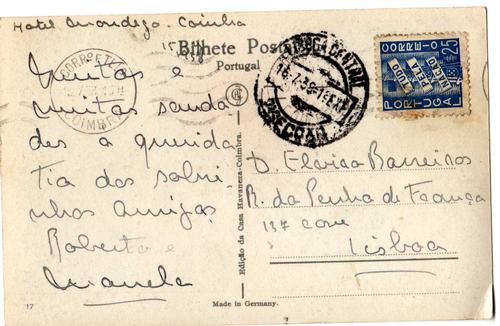 Hotel Mondego - Coimbra
15
Bilhete Postal
Portugal
Muitas e
muitas sauda
des a querida
tia dos sobri
nhos amigos
Roberto e
Manuela
17
Edição da Casa Havaneza-Coimbra.
Made in Germany.
COIMBRA
CENTRAL
CORREIO
25
TUDO
PELA
NAÇÃO
PORTUGAL
D. Elvira Barreiros
R. da Penha de França
137 cave
Lisboa